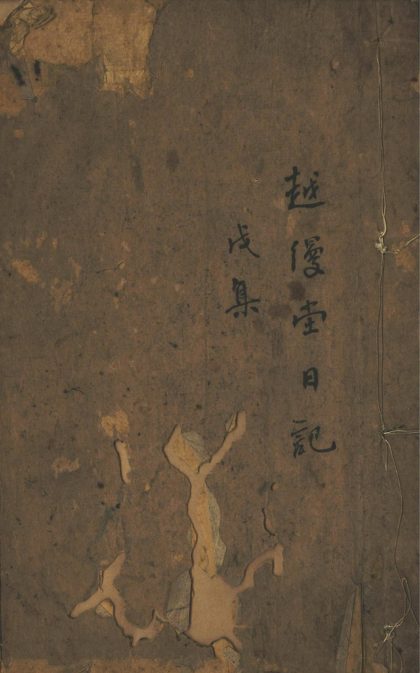 越縵堂日記
戊集